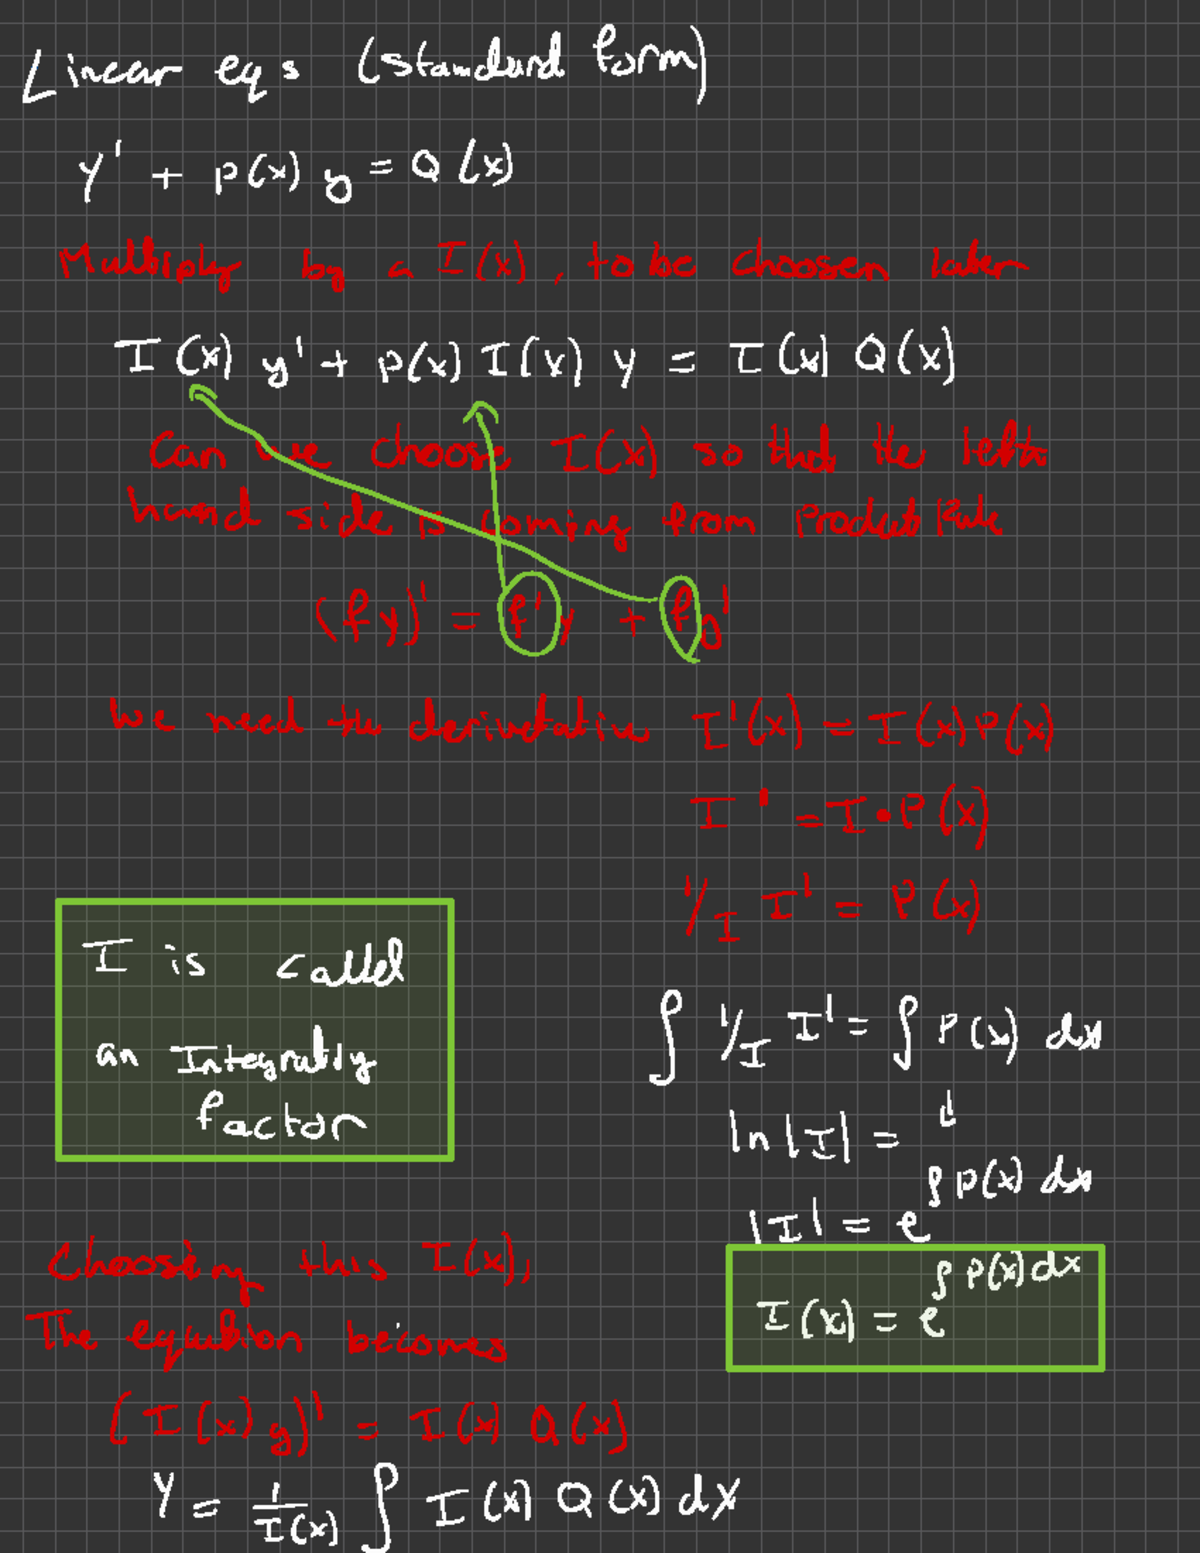 Linear eqs (standard form)
y' + p(x) y = Q(x)
Multiply by a I(x), to be choosen later
I(x) y' + p(x) I(x) y = I(x) Q(x)
Can we choose I(x) so that the left
hand side is coming from Product Rule
(f y)' = f' y + f y'
We need the derivetative I'(x) = I(x) P(x)
I' = I • P(x)
1/I I' = P(x)
I is called
an Integrating
factor
∫ 1/I I' = ∫ P(x) dx
ln |I| =
|I| = e^∫ p(x) dx
I(x) = e^∫ P(x) dx
Choosing this I(x),
The equation becomes
(I(x) y)' = I(x) Q(x)
y = 1/I(x) ∫ I(x) Q(x) dx